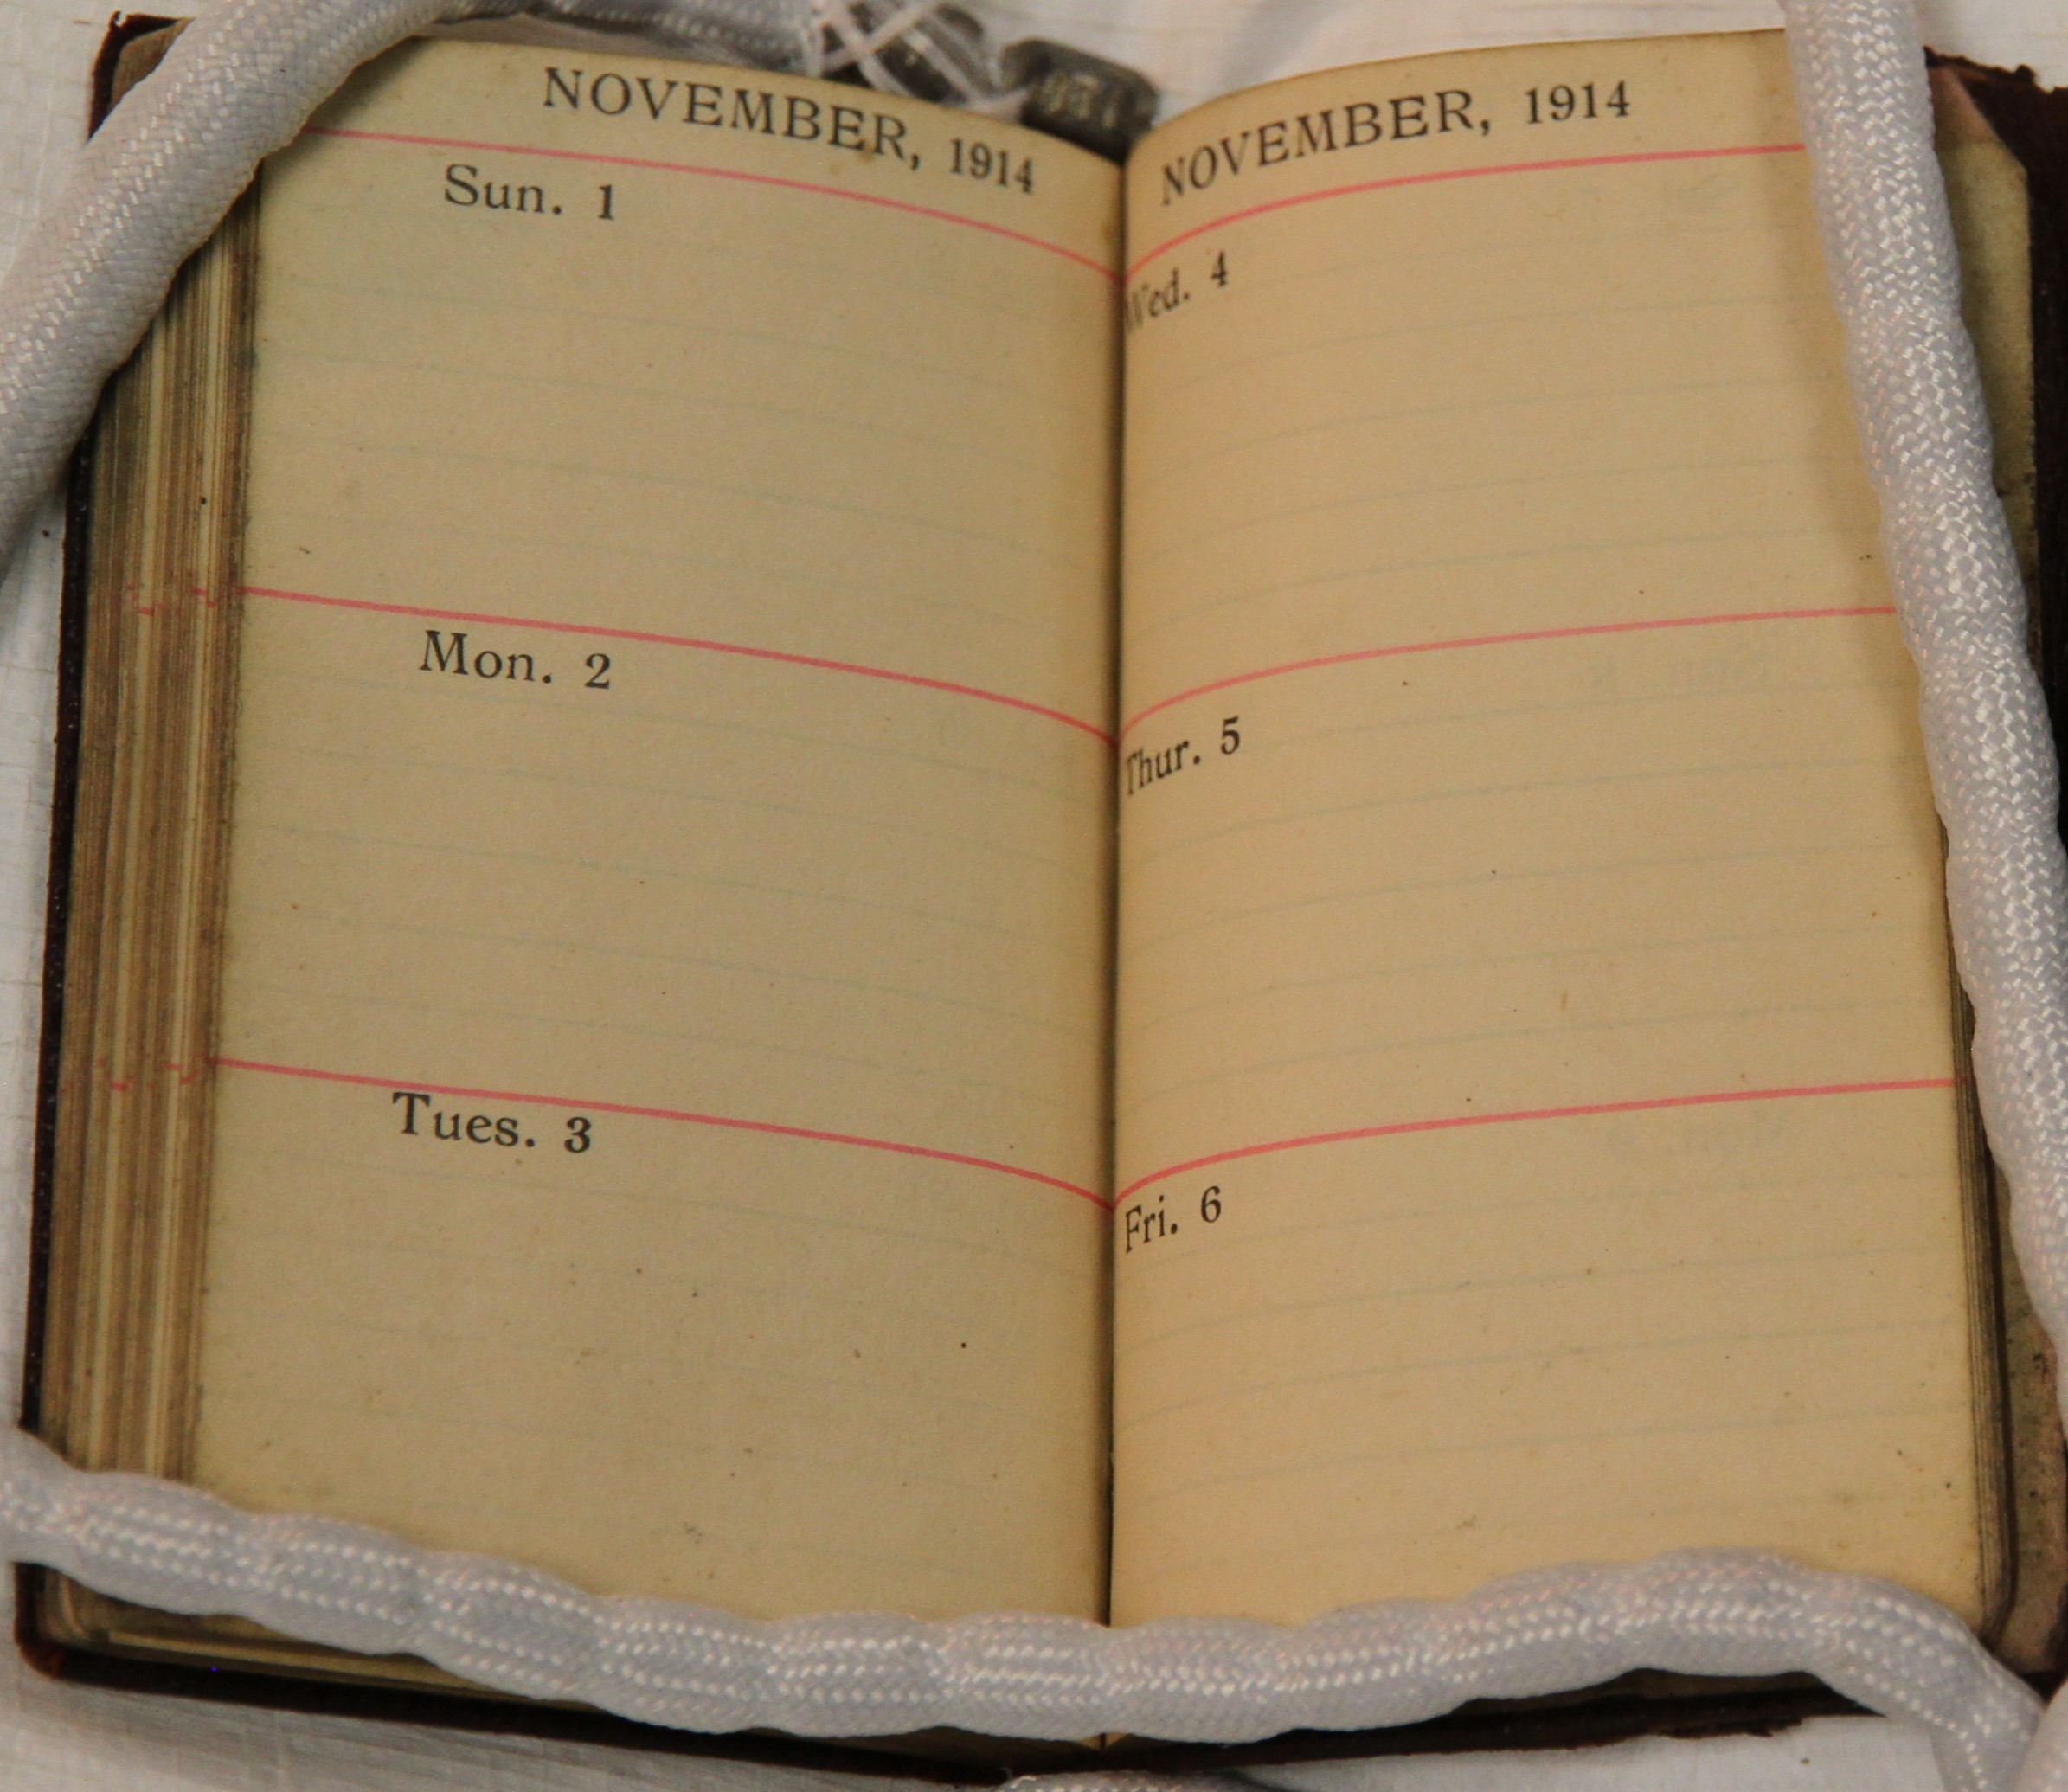 NOVEMBER, 1914
Sun. 1
Mon. 2
Tues. 3
NOVEMBER, 1914
Wed. 4
Thur. 5
Fri. 6